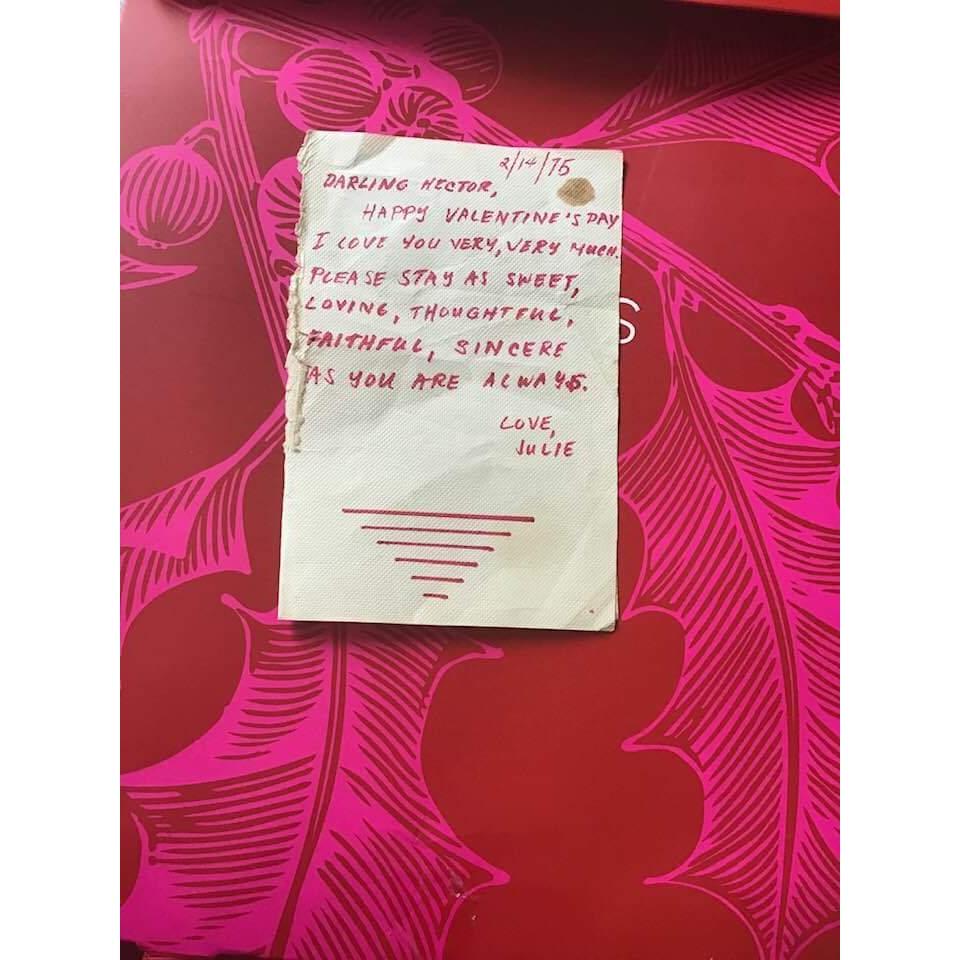 2/14/75
DARLING HECTOR,
HAPPY VALENTINE'S DAY
I LOVE YOU VERY, VERY MUCH.
PLEASE STAY AS SWEET,
LOVING, THOUGHTFUL,
S
FAITHFUL, SINCERE
AS YOU ARE ALWAYS.
LOVE,
JULIE